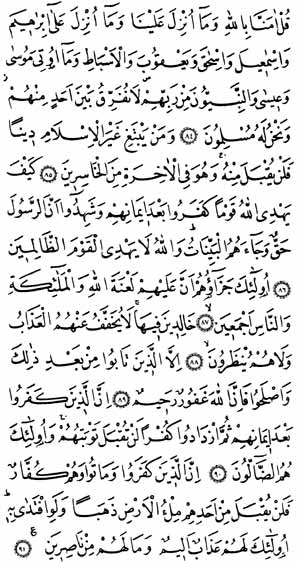 قُلْ اٰمَنَّا بِاللهِ وَمَآ اُنْزِلَ عَلَيْنَا وَمَآ اُنْزِلَ عَلٰٓى اِبْرٰهِيْمَ
وَاِسْمٰعِيْلَ وَاِسْحٰقَ وَيَعْقُوْبَ وَالْاَسْبَاطِ وَمَآ اُوْتِيَ مُوْسٰى
وَعِيْسٰى وَالنَّبِيُّوْنَ مِنْ رَّبِّهِمْ لَا نُفَرِّقُ بَيْنَ اَحَدٍ مِّنْهُمْ
وَنَحْنُ لَهٗ مُسْلِمُوْنَ ﴿٨٤﴾ وَمَنْ يَّبْتَغِ غَيْرَ الْاِسْلَامِ دِيْنًا
فَلَنْ يُّقْبَلَ مِنْهُ وَهُوَ فِي الْاٰخِرَةِ مِنَ الْخَاسِرِيْنَ ﴿٨٥﴾ كَيْفَ
يَهْدِى اللهُ قَوْمًا كَفَرُوْا بَعْدَ اِيْمَانِهِمْ وَشَهِدُوْٓا اَنَّ الرَّسُوْلَ
حَقٌّ وَّجَآءَهُمُ الْبَيِّنٰتُ وَاللهُ لَا يَهْدِى الْقَوْمَ الظَّالِمِيْنَ
﴿٨٦﴾ اُولٰٓئِكَ جَزَآؤُهُمْ اَنَّ عَلَيْهِمْ لَعْنَةَ اللهِ وَالْمَلٰٓئِكَةِ
وَالنَّاسِ اَجْمَعِيْنَ ﴿٨٧﴾ خَالِدِيْنَ فِيْهَا لَا يُخَفَّفُ عَنْهُمُ الْعَذَابُ
وَلَا هُمْ يُنْظَرُوْنَ ﴿٨٨﴾ اِلَّا الَّذِيْنَ تَابُوْا مِنْ بَعْدِ ذٰلِكَ
وَاَصْلَحُوْا فَاِنَّ اللهَ غَفُوْرٌ رَّحِيْمٌ ﴿٨٩﴾ اِنَّ الَّذِيْنَ كَفَرُوْا
بَعْدَ اِيْمَانِهِمْ ثُمَّ ازْدَادُوْا كُفْرًا لَّنْ تُقْبَلَ تَوْبَتُهُمْ وَاُولٰٓئِكَ
هُمُ الضَّآلُّوْنَ ﴿٩٠﴾ اِنَّ الَّذِيْنَ كَفَرُوْا وَمَاتُوْا وَهُمْ كُفَّارٌ
فَلَنْ يُّقْبَلَ مِنْ اَحَدِهِمْ مِّلْءُ الْاَرْضِ ذَهَبًا وَّلَوِ افْتَدٰى بِهٖ
اُولٰٓئِكَ لَهُمْ عَذَابٌ اَلِيْمٌ وَّمَا لَهُمْ مِّنْ نَّاصِرِيْنَ ﴿٩١﴾ ع